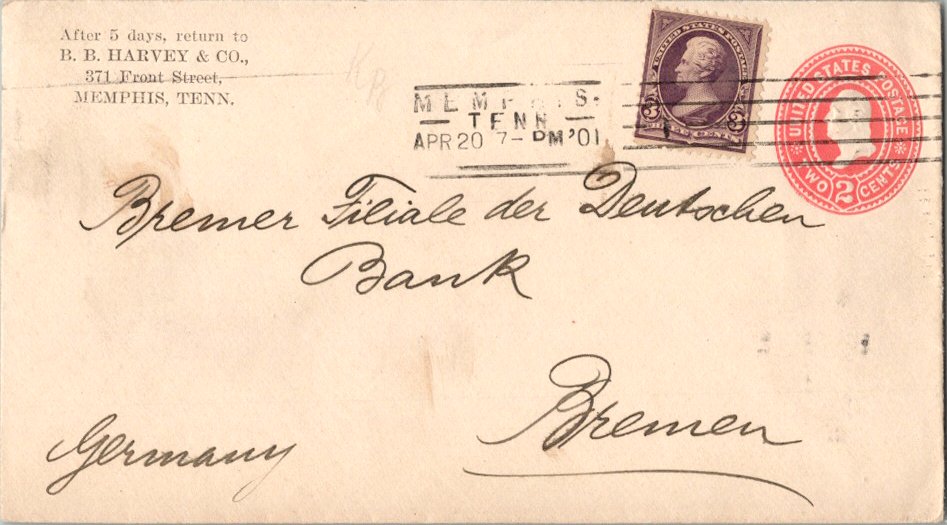 After 5 days, return to
B. B. HARVEY & CO.,
371 Front Street,
MEMPHIS, TENN.
MEMPHIS.
TENN
APR 20 7-PM '01
UNITED STATES POSTAGE
THREE CENTS
3 3
UNITED STATES POSTAGE
TWO 2 CENTS
Bremer Filiale der Deutschen
Bank
Bremen
Germany